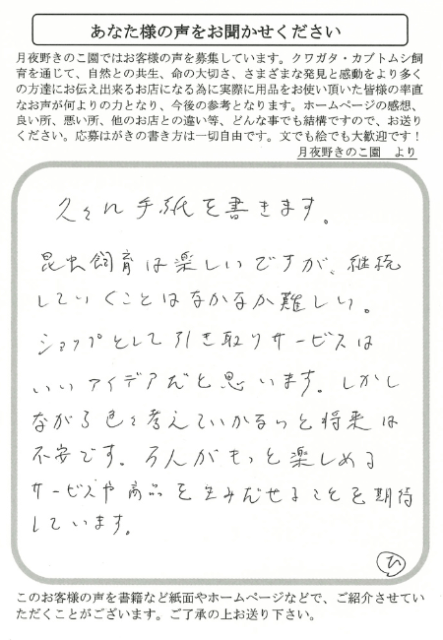 あなた様の声をお聞かせください
月夜野きのこ園ではお客様の声を募集しています。クワガタ・カブトムシ飼
育を通じて、自然との共生、命の大切さ、さまざまな発見と感動をより多く
の方達にお伝え出来るお店になる為に実際に用品をお使い頂いた皆様の率直
なお声が何よりの力となり、今後の参考となります。ホームページの感想、
良い所、悪い所、他のお店との違い等、どんな事でも結構ですので、お送り
ください。応募はがきの書き方は一切自由です。文でも絵でも大歓迎です！
月夜野きのこ園　より
久々に手紙を書きます。
昆虫飼育は楽しいですが、継続
していくことはなかなか難しい。
ショップとして引き取りサービスは
いいアイデアだと思います。しかし
ながら色々考えていかないと将来は
不安です。万人がもっと楽しめる
サービスや商品を生みだせることを期待
しています。
ひ
このお客様の声を書籍など紙面やホームページなどで、ご紹介させてい
ただくことがございます。ご了承の上お送り下さい。